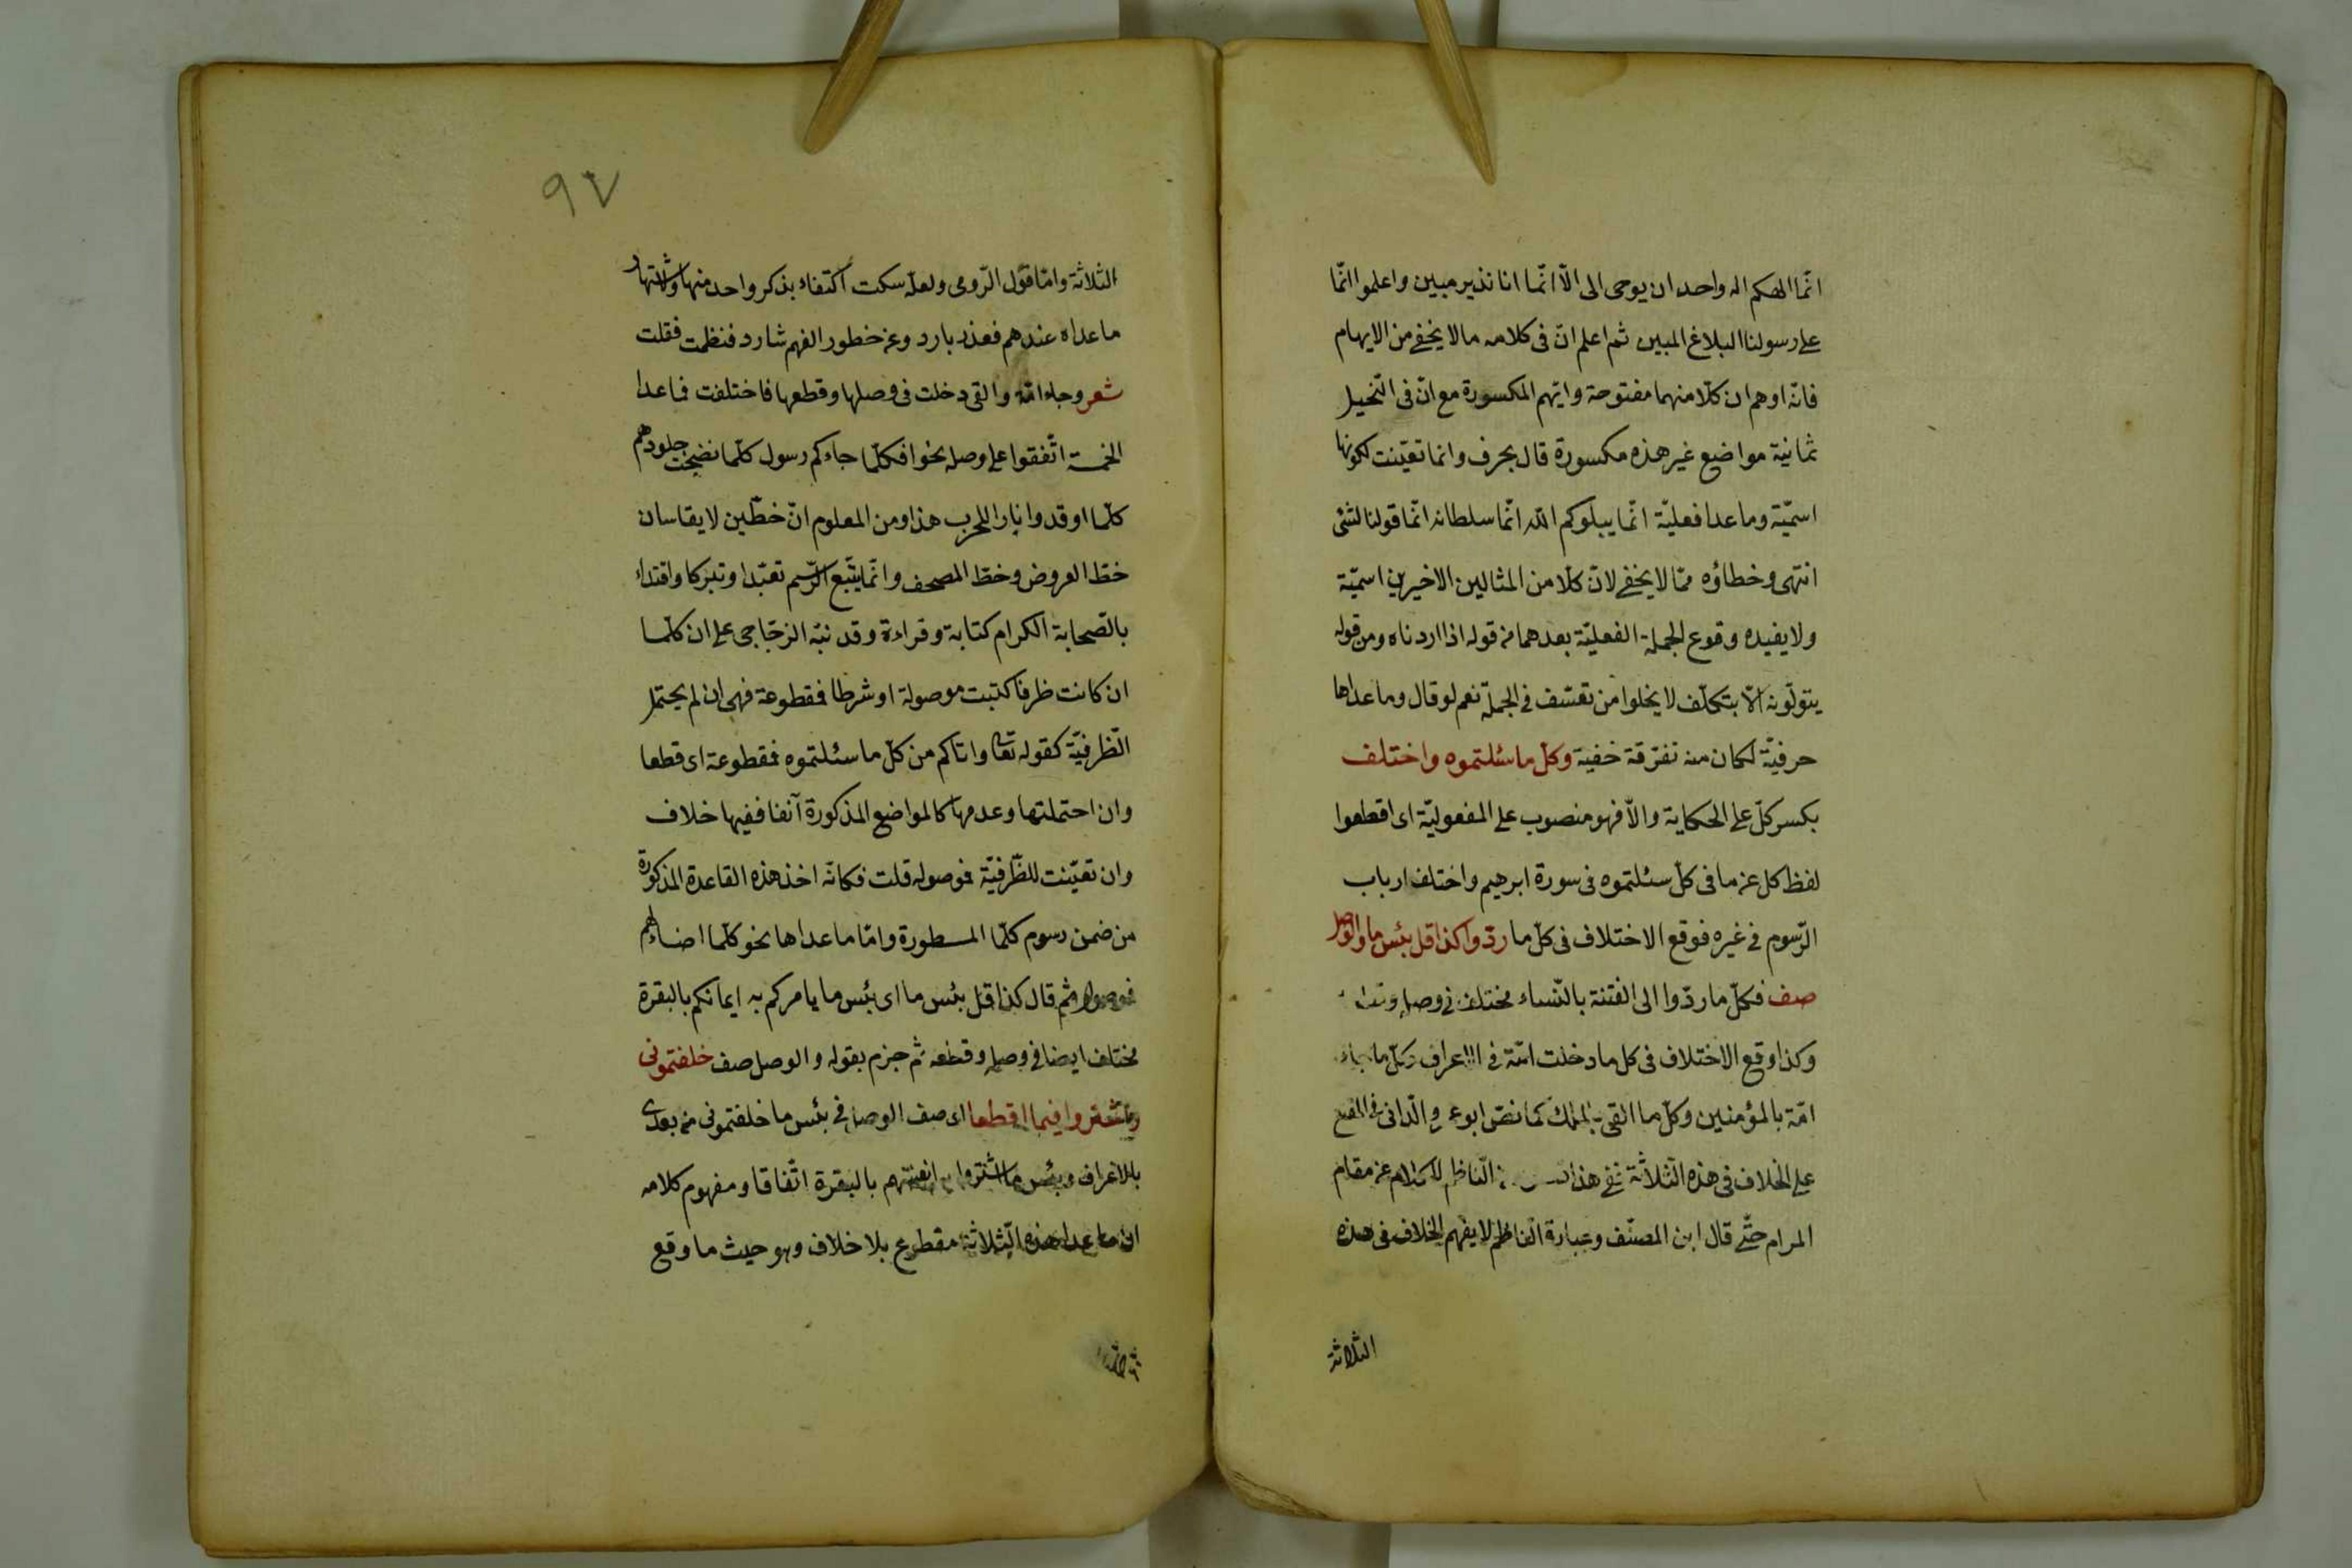 انّما الهكم اله واحد ان يوحى الى الّا انّما انا نذير مبين واعلموا انّما
على رسولنا البلاغ المبين ثم اعلم انّ فى كلامه ما لا يخفى من الايهام
فانّه اوهم ان كلّا منهما مفتوحة وايّهم المكسورة مع انّ فى النّحل
ثمانية مواضع غير هذه مكسورة قال بحرف وانما تعيّنت لكونها
اسميّة وما عدا فعليّة انّما يبلوكم الله انّما سلطانه انّما قولنا لشئ
انتهى وخطاؤه ممّا لا يخفى لانّ كلّا من المثالين الاخيرين اسميّة
ولا يفيده وقوع الجملة الفعليّة بعدهما من قوله اذا اردناه ومن قوله
يتولّونه الّا بتكلّف لا يخلوا من تعسّف فى الجملة نعم لو قال وما عداها
حرفيّة لكان منه تفرّقة خفية وكلّ ما سئلتموه واختلف
بكسر كلّ على الحكاية والّا فهو منصوب على المفعوليّة اى اقطعوا
لفظ كل عن ما فى كلّ سئلتموه فى سورة ابرهيم واختلف ارباب
الرّسوم فى غيره فوقع الاختلاف فى كلّ ما ردّوا كذا قل بئس ما والوصل
صف فكلّ ما ردّوا الى الفتنة بالنّساء مختلف فى وصله
وكذا وقع الاختلاف فى كل ما دخلت امّة فى الاعراف وكلّ ما جاء
امّة بالمؤمنين وكلّ ما القى بالملك كما نصّ ابو عمرو الدّانى فى المقنع
على الخلاف فى هذه الثّلاثة ففى هذا النّاظم للكلام عن مقام
المرام حتّى قال ابن المصنّف وعبارة النّاظم لا يفهم الخلاف فى هذه
الثّلاثة
٩٧
الثلاثة وامّا قول الرّومى ولعلّه سكت اكتفاء بذكر واحد منها وشهرتها و
ما عداه عندهم فعذر بارد وعن خطور الفهم شارد فنظمت فقلت
شعر وجاء امّة والقى دخلت فى وصلها وقطعها فاختلفت فما عدا
الخمسة اتّفقوا على وصله نحو افكلّما جاءكم رسول كلّما نضجت جلودهم
كلّما اوقدوا نارا للحرب هذا ومن المعلوم انّ خطّين لا يقاسان
خطّ العروض وخطّ المصحف وانّما يتّبع الرّسم تعبّدا وتبرّكا واقتداء
بالصّحابة الكرام كتابة وقراءة وقد نبّه الزجّاجى على ان كلّما
ان كانت ظرفا كتبت موصولة او شرطا فمقطوعة فهى ان لم يحتمل
الظّرفيّة كقوله تعا واتاكم من كلّ ما سئلتموه فمقطوعة اى قطعا
وان احتملتها وعدمها كالمواضع المذكورة آنفا ففيها خلاف
وان تعيّنت للظّرفيّة فموصوله قلت فكانّه اخذ هذه القاعدة المذكورة
من ضمن رسوم كلّما المسطورة وامّا ما عداها نحو كلّما اضاء لهم
فموصوله ثم قال كذا قل بئس ما اى بئس ما يامركم به ايمانكم بالبقرة
مختلف ايضا فى وصله وقطعه ثم جزم بقوله والوصل صف خلفتمونى
واشتروا فيما اقطعا اى صف الوصل فى بئس ما خلفتمونى من بعدى
بالاعراف وبئس ما اشتروا به انفسهم بالبقرة اتّفاقا ومفهوم كلامه
ان ما عدا هذه الثّلاثة مقطوع بلا خلاف وهو حيث ما وقع